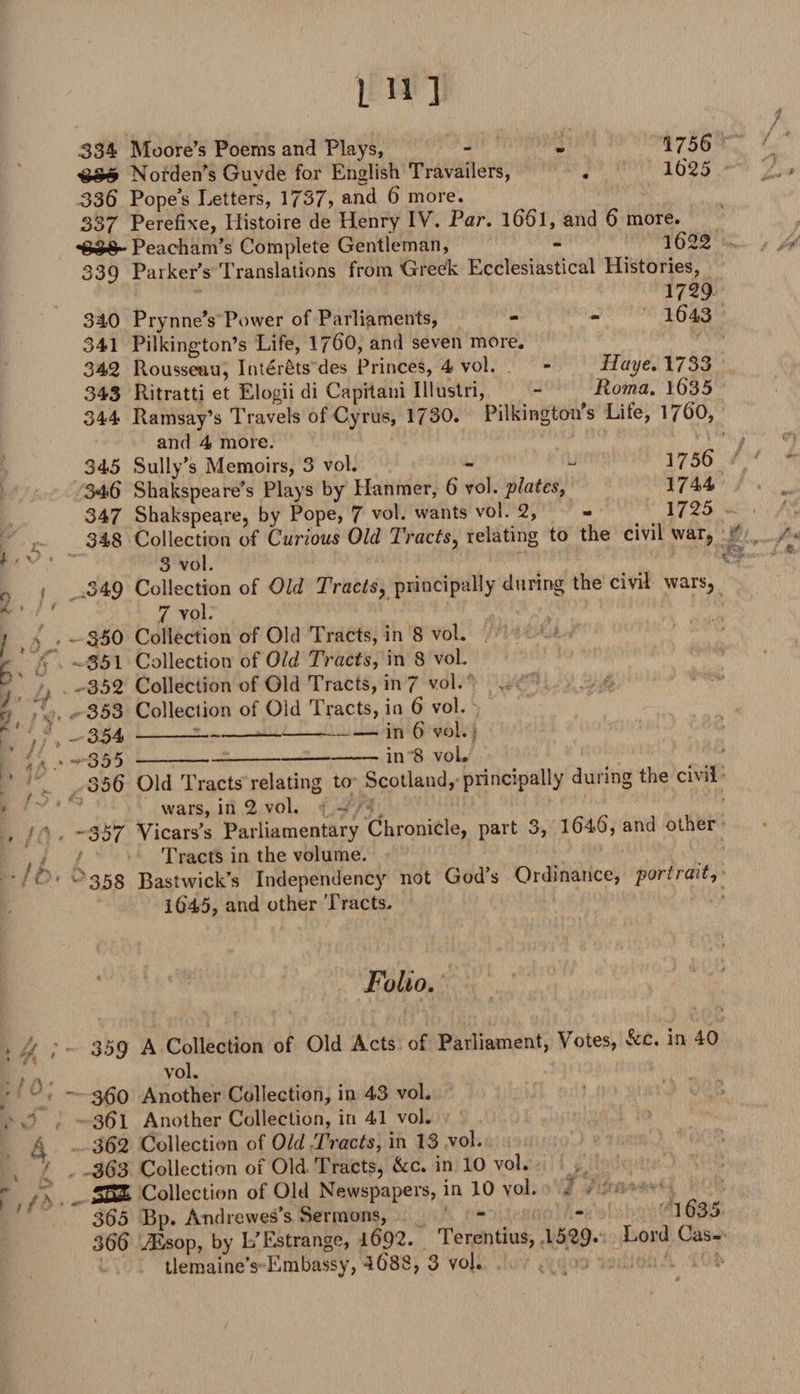 [ 11 ]
334 Moore's Poems and Plays, - - 1756
335 Norden's Guyde for English Travailers, . 1625
336 Pope's Letters, 1737, and 6 more.
337 Perefixe, Histoire de Henry IV. Par. 1661, and 6 more.
338 Peacham's Complete Gentleman, - 1622
339 Parker's Translations from Greek Ecclesiastical Histories,
1729
340 Prynne's Power of Parliaments, - - 1643
341 Pilkington's Life, 1760, and seven more.
342 Rousseau, Intérêts des Princes, 4 vol. - Haye. 1733
343 Ritratti et Elogii di Capitani Illustri, - Roma. 1635
344 Ramsay's Travels of Cyrus, 1730. Pilkington's Life, 1760,
and 4 more.
345 Sully's Memoirs, 3 vol. - - 1756
346 Shakspeare's Plays by Hanmer, 6 vol. plates, 1744
347 Shakspeare, by Pope, 7 vol. wants vol. 2, - 1725
348 Collection of Curious Old Tracts, relating to the civil war,
3 vol.
349 Collection of Old Tracts, principally during the civil wars,
7 vol.
350 Collection of Old Tracts, in 8 vol.
351 Collection of Old Tracts, in 8 vol.
352 Collection of Old Tracts, in 7 vol.
353 Collection of Old Tracts, in 6 vol.
354 ——— in 6 vol.
355 ——— in 8 vol.
356 Old Tracts relating to Scotland, principally during the civil
wars, in 2 vol.
357 Vicars's Parliamentary Chronicle, part 3, 1646, and other
Tracts in the volume.
358 Bastwick's Independency not God's Ordinance, portrait,
1645, and other Tracts.
Folio.
359 A Collection of Old Acts of Parliament, Votes, &c. in 40
vol.
360 Another Collection, in 43 vol.
361 Another Collection, in 41 vol.
362 Collection of Old Tracts, in 13 vol.
363 Collection of Old Tracts, &c. in 10 vol.
364 Collection of Old Newspapers, in 10 vol.
365 Bp. Andrewes's Sermons, - - 1635
366 Æsop, by L'Estrange, 1692. Terentius, 1529. Lord Cas-
tlemaine's Embassy, 1688, 3 vol.